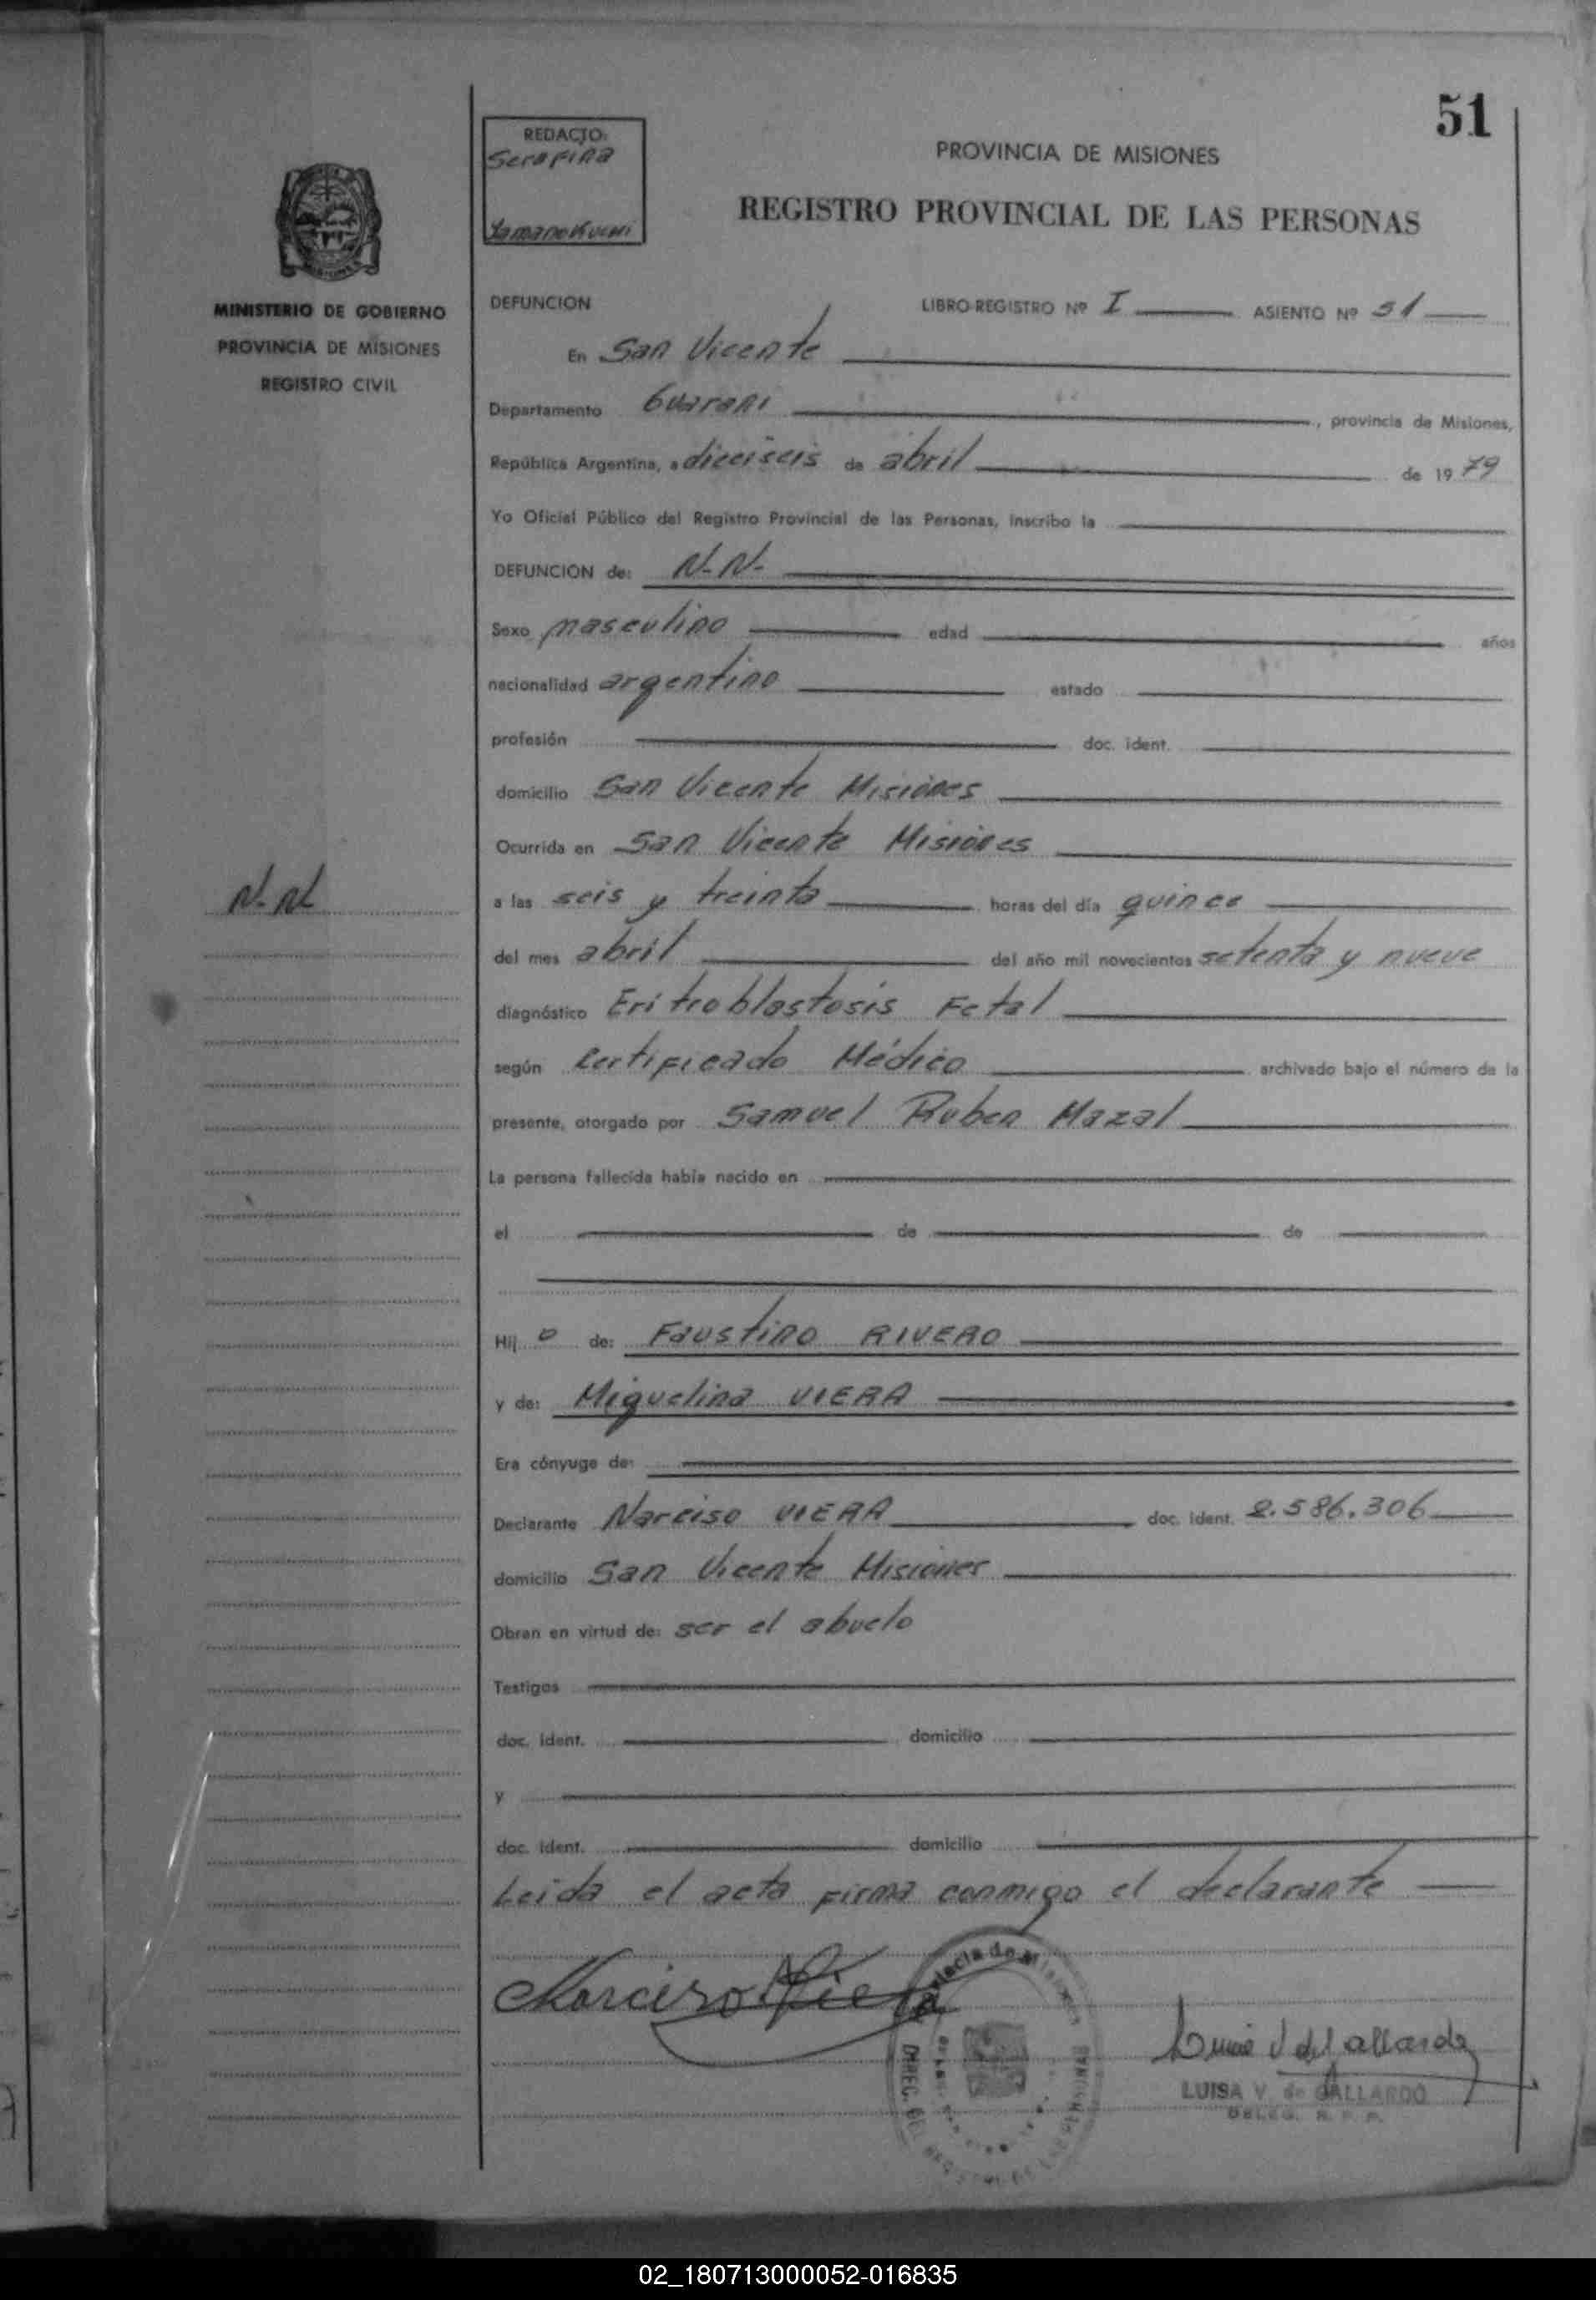 51
REDACTO:
Serafina
PROVINCIA DE MISIONES
REGISTRO PROVINCIAL DE LAS PERSONAS
MINISTERIO DE GOBIERNO
PROVINCIA DE MISIONES
REGISTRO CIVIL
DEFUNCION LIBRO-REGISTRO Nº I ASIENTO Nº 51
En San Vicente
Departamento Guarani, provincia de Misiones,
República Argentina, a dieciseis de abril de 1979
Yo Oficial Público del Registro Provincial de las Personas, inscribo la
DEFUNCION de: N.N.
Sexo masculino edad años
nacionalidad argentino estado
profesión doc. ident.
domicilio San Vicente Misiones
Ocurrida en San Vicente Misiones
N.N.
a las seis y treinta horas del día quince
del mes abril del año mil novecientos setenta y nueve
diagnóstico Eritroblastosis Fetal
según Certificado Médico archivado bajo el número de la
presente, otorgado por Samuel Ruben Mazal
La persona fallecida había nacido en
el de de
Hij o de: Faustino RIVERO
y de: Miguelina VIERA
Era cónyuge de:
Declarante Narciso VIERA doc. ident. 2.586.306
domicilio San Vicente Misiones
Obran en virtud de: ser el abuelo
Testigos
doc. ident. domicilio
y
doc. ident. domicilio
Leida el acta firma conmigo el declarante
Narciso Viera
LUISA V. de GALLARDO
DELEG. R. P. P.
02_180713000052-016835